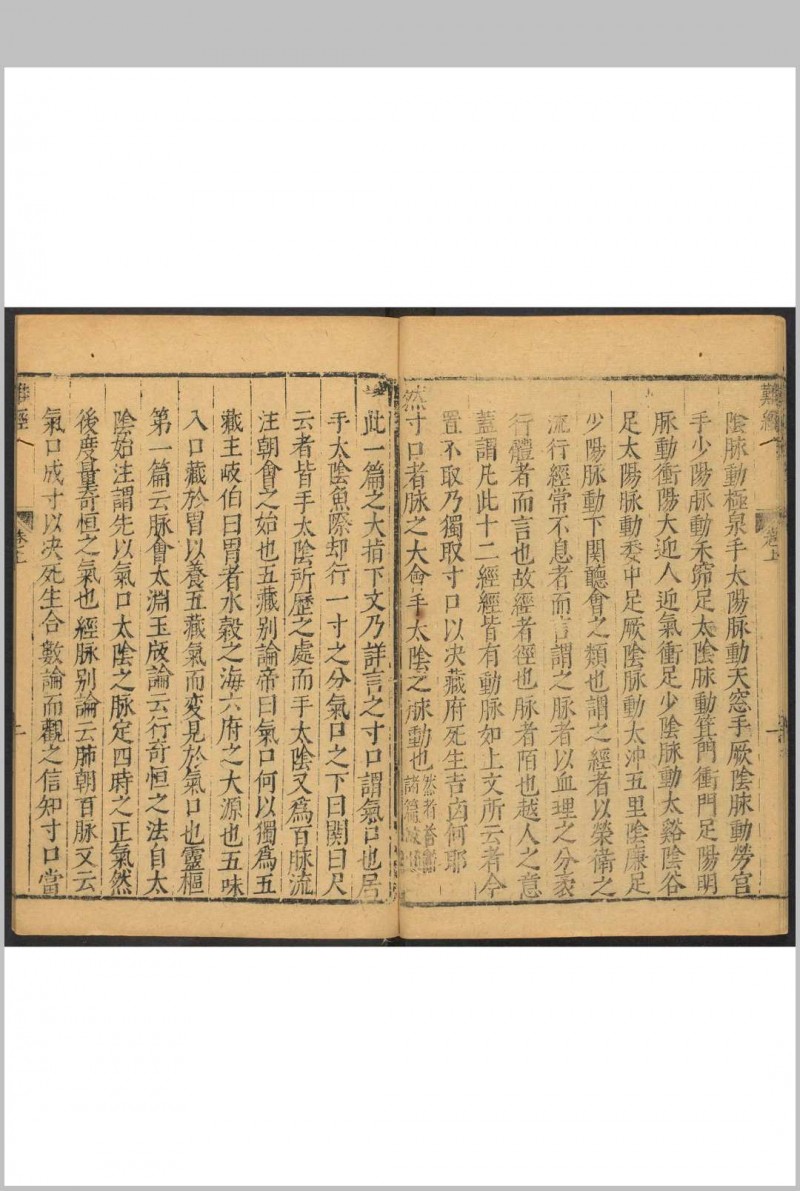 難經
卷上
陰脉動極泉手太陽脉動天窓手厥陰脉動勞宮
手少陽脉動禾窌足太陰脉動箕門衝門足陽明
脉動衝陽大迎人迎氣衝足少陰脉動太谿陰谷
足太陽脉動委中足厥陰脉動太沖五里陰廉足
少陽脉動下関聽會之類也謂之經者以榮衛之
流行經常不息者而言謂之脉者以血理之分衺
行體者而言也故經者徑也脉者陌也越人之意
蓋謂凡此十二經經皆有動脉如上文所云者今
置不取乃獨取寸口以决藏府死生吉凶何耶
然寸口者脉之大會手太陰之脉動也然者荅
諸篇
此一篇之大指下文乃詳言之寸口謂氣口也居
手太陰魚際却行一寸之分氣口之下曰関曰尺
云者皆手太陰所歷之處而手太陰又為百脉流
注朝會之始也五藏别論帝曰氣口何以獨為五
藏主岐伯曰胃者水穀之海六府之大源也五味
入口藏於胃以養五藏氣而变見於氣口也靈樞
第一篇云脉會太淵玉版論云行奇恒之法自太
陰始注謂先以氣口太陰之脉定四時之正氣然
後度量奇恒之氣也經脉别論云肺朝百脉又云
氣口成寸以决死生合數論而觀之信知寸口當
難經
卷上